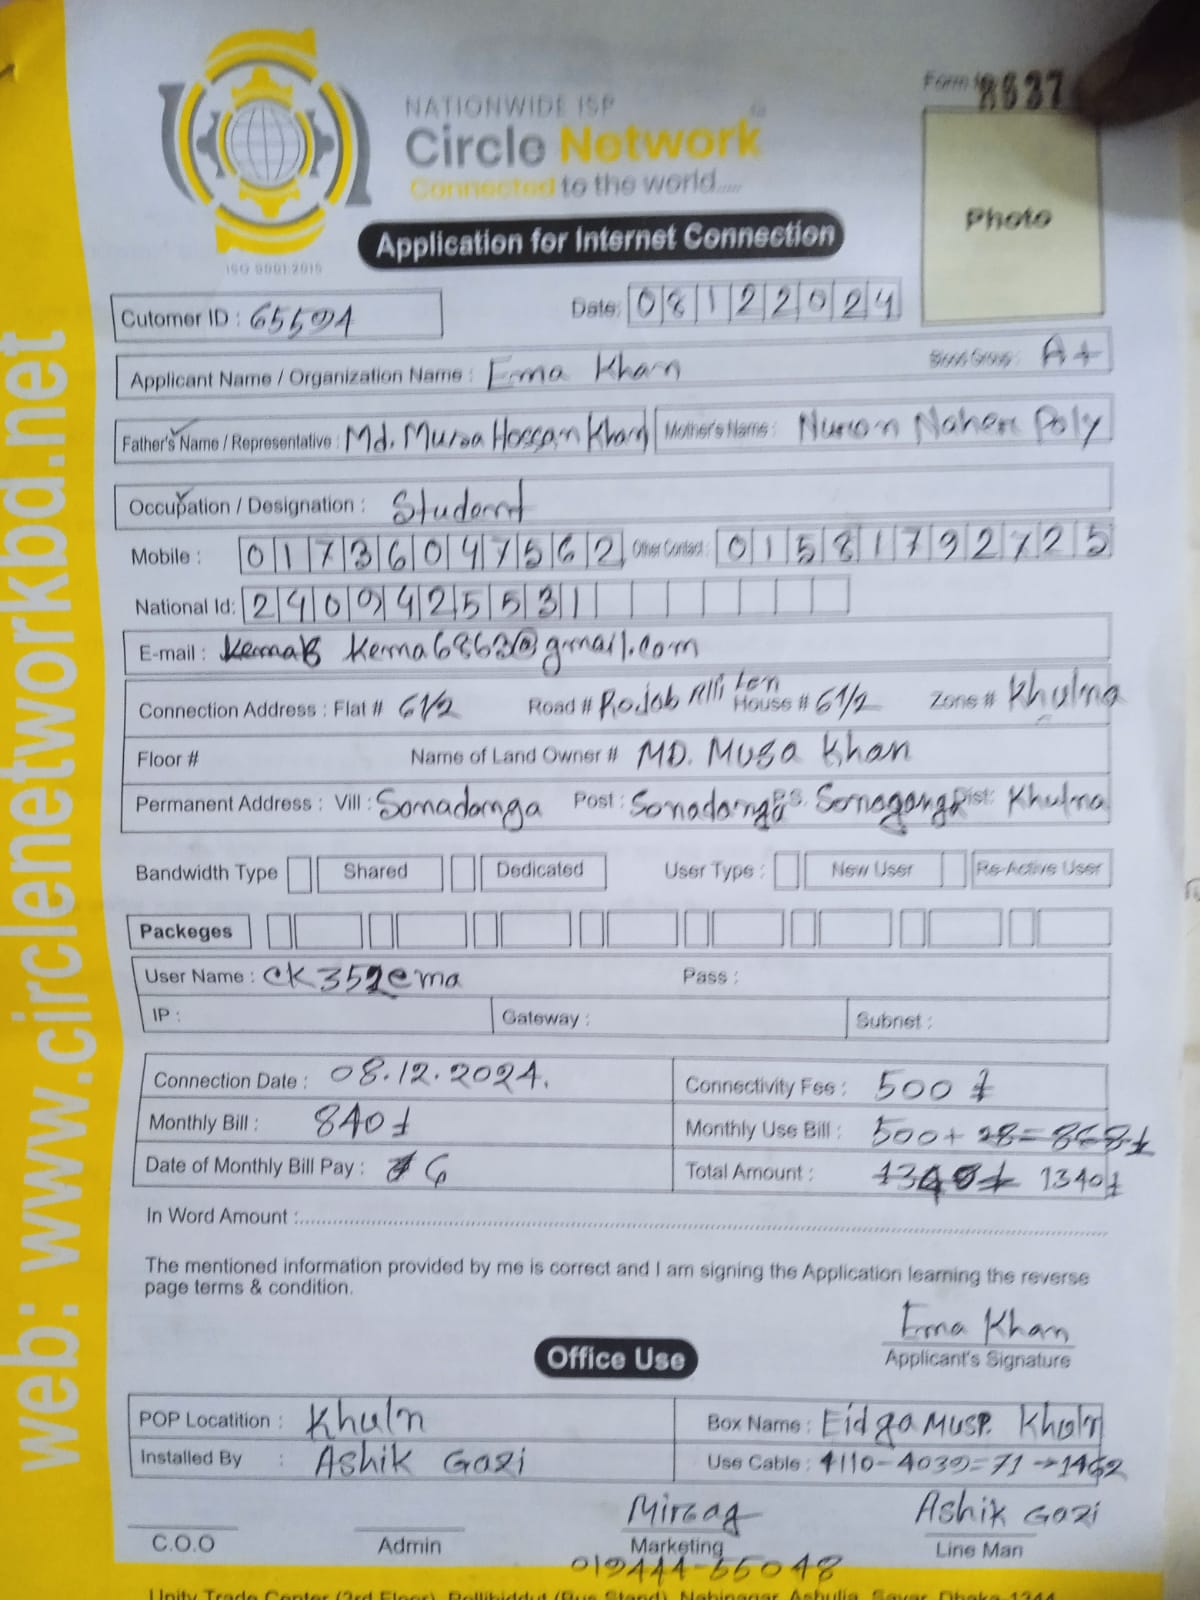 Form No 8637
NATIONWIDE ISP
Circle Network
Connected to the world.....
ISO 9001:2015
Photo
Application for Internet Connection
Cutomer ID : 65594
Date: 08122024
Applicant Name / Organization Name : Ema Khan Blood Group : A+
Father's Name / Representative : Md. Musa Hossan Khan Mother's Name : Nuron Naher Poly
Occupation / Designation : Student
Mobile : 01736047562 Other Contact : 01581792725
National Id: 2409425531
E-mail : kema6863@gmail.com
Connection Address : Flat # 61/2 Road # Rojab Alli Len House # 61/2 Zone # Khulna
Floor # Name of Land Owner # MD. Musa Khan
Permanent Address : Vill : Sonadanga Post : Sonadanga P.S. Dist: Khulna
Bandwidth Type Shared Dedicated User Type : New User Re-Active User
Packeges
User Name : CK352ema Pass :
IP : Gateway : Subnet :
Connection Date : 08.12.2024. Connectivity Fee : 500
Monthly Bill : 840 Monthly Use Bill : 500+ 28= 868
Date of Monthly Bill Pay : 6 Total Amount : 1340
In Word Amount :
The mentioned information provided by me is correct and I am signing the Application learning the reverse
page terms & condition.
Ema Khan
Applicant's Signature
Office Use
POP Locatition : Khuln Box Name : Eidga Musp. Khuln
Installed By : Ashik Gazi Use Cable : 4110-4039=71 →1462
Ashik Gozi
C.O.O Admin Marketing Line Man
019444-55048
Unity Trade Center (3rd Floor), Pollibiddut (Bus Stand), Nabinagar, Ashulia, Savar, Dhaka-1344
web: www.circlenetworkbd.net